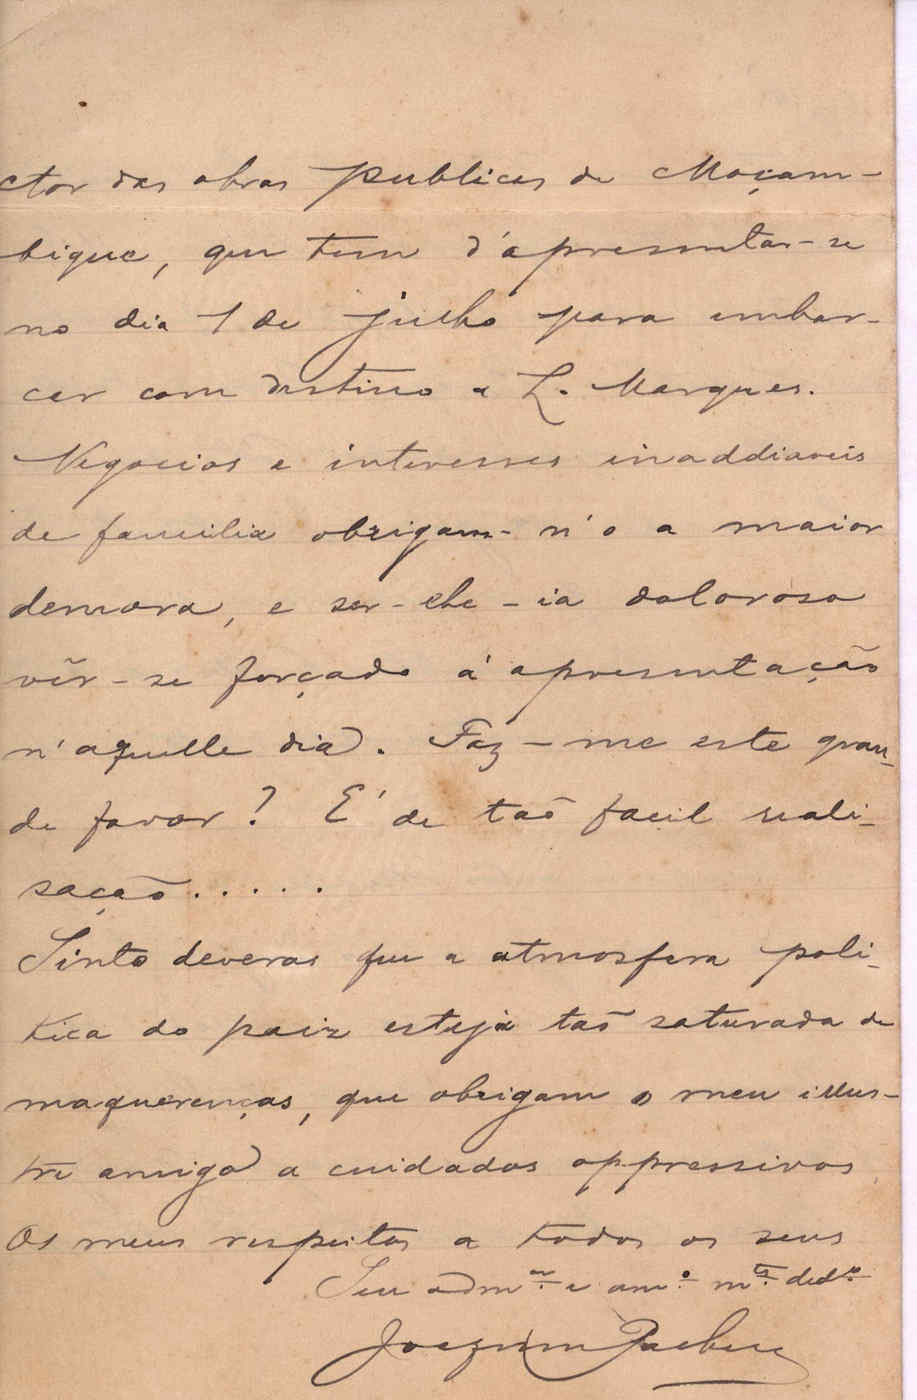 ctor das obras publicas de Moçam-
bique, que tem d'apresentar-se
no dia 1 de julho para embar-
car com destino a L. Marques.
Negocios e interesses inaddiaveis
de familia obrigam-n'o a maior
demora, e ser-lhe-ia doloroso
vêr-se forçado á apresentação
n'aquelle dia. Faz-me este gran-
de favor? É de tão facil reali-
sação.....
Sinto deveras que a atmosfera poli-
tica do paiz esteja tão saturada de
maquerenças, que obrigam o meu illus-
tre amigo a cuidados oppressivos
Os meus respeitos a todos os seus
Seu adm.or e am.o m.to ded.o
Joaquim Pacheco